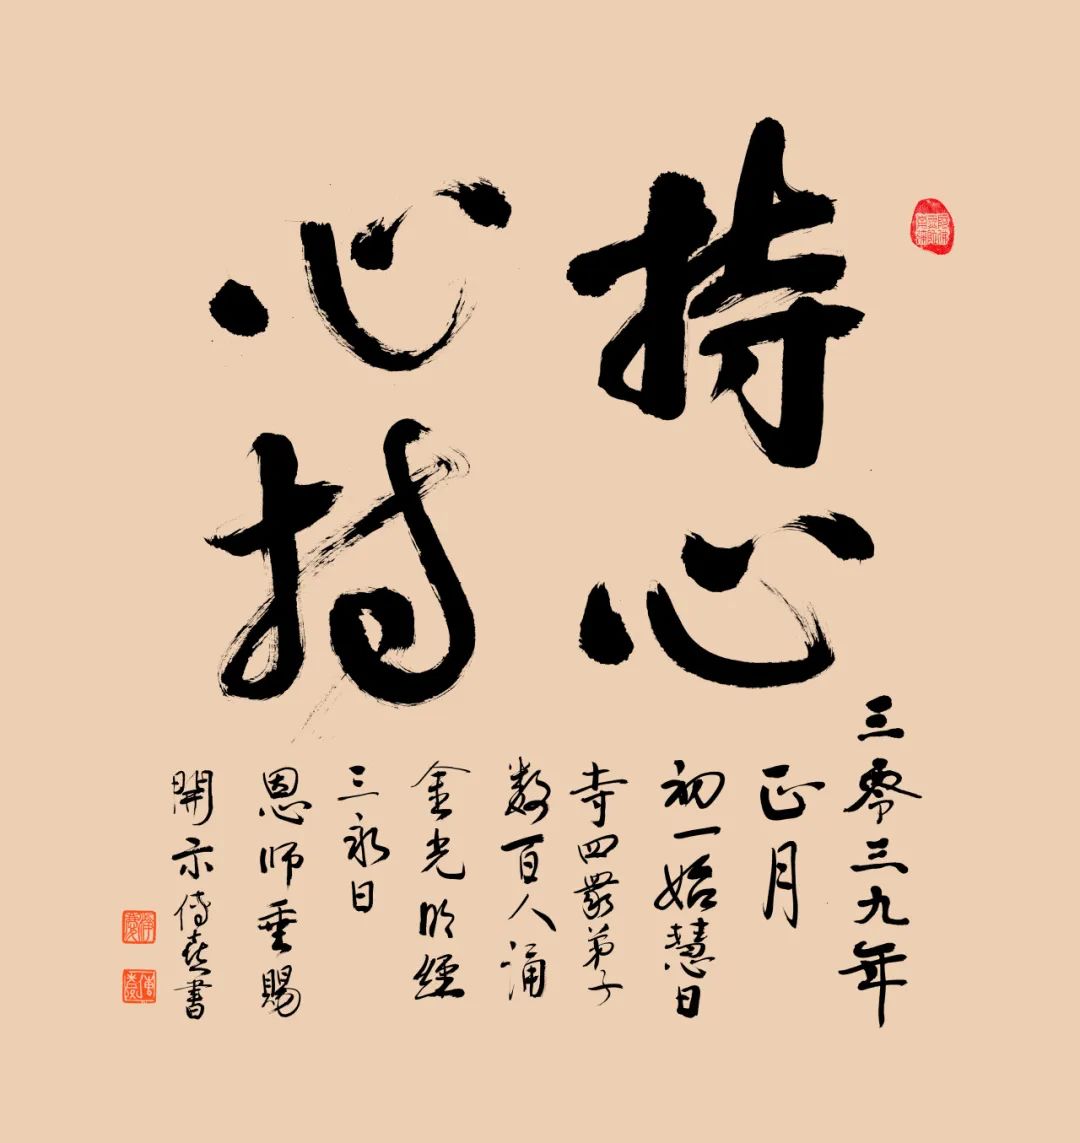 持心
心持
三零三九年
正月
初一始慧日
寺四眾弟子
数百人诵
金光明經
三永日
恩师垂賜
開示传喜書